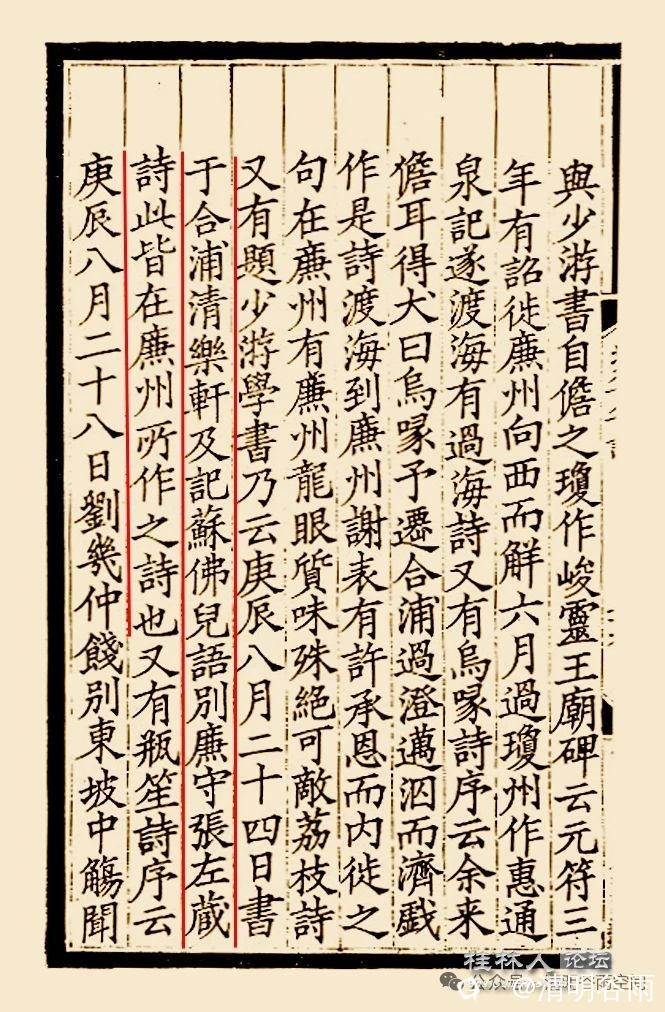 與少游書自儋之瓊作峻靈王廟碑云元符三
年有詔徙廉州向西而辭六月過瓊州作惠通
泉記遂渡海有過海詩又有烏喙詩序云余来
儋耳得犬曰烏喙予遷合浦過澄邁泅而濟戲
作是詩渡海到廉州謝表有許承恩而内徙之
句在廉州有廉州龍眼質味殊絶可敵荔枝詩
又有題少游學書乃云庚辰八月二十四日書
于合浦清樂軒及記蘇佛兒語別廉守張左藏
詩此皆在廉州所作之詩也又有瓶笙詩序云
庚辰八月二十八日劉幾仲餞別東坡中觴聞
桂林人论坛
@清明谷雨